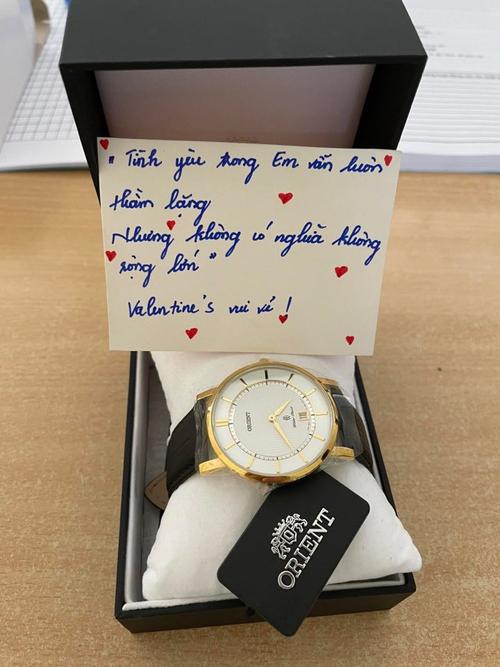 " Tình yêu trong Em vẫn luôn
thầm lặng
Nhưng không có nghĩa không
rộng lớn "
Valentine's vui vẻ !
ORIENT
ORIENT